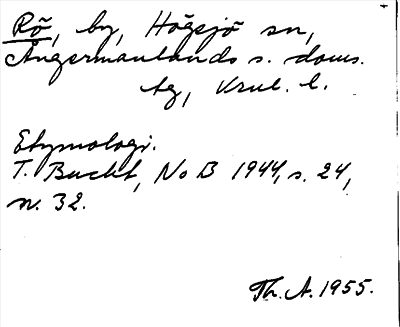 Rö, by, Högsjö sn,
Ångermanlands s. doms.
tg, Vrnl. l.
Etymologi.
T. Bucht, No B 1944, s. 24,
n. 32.
Th. A. 1955.